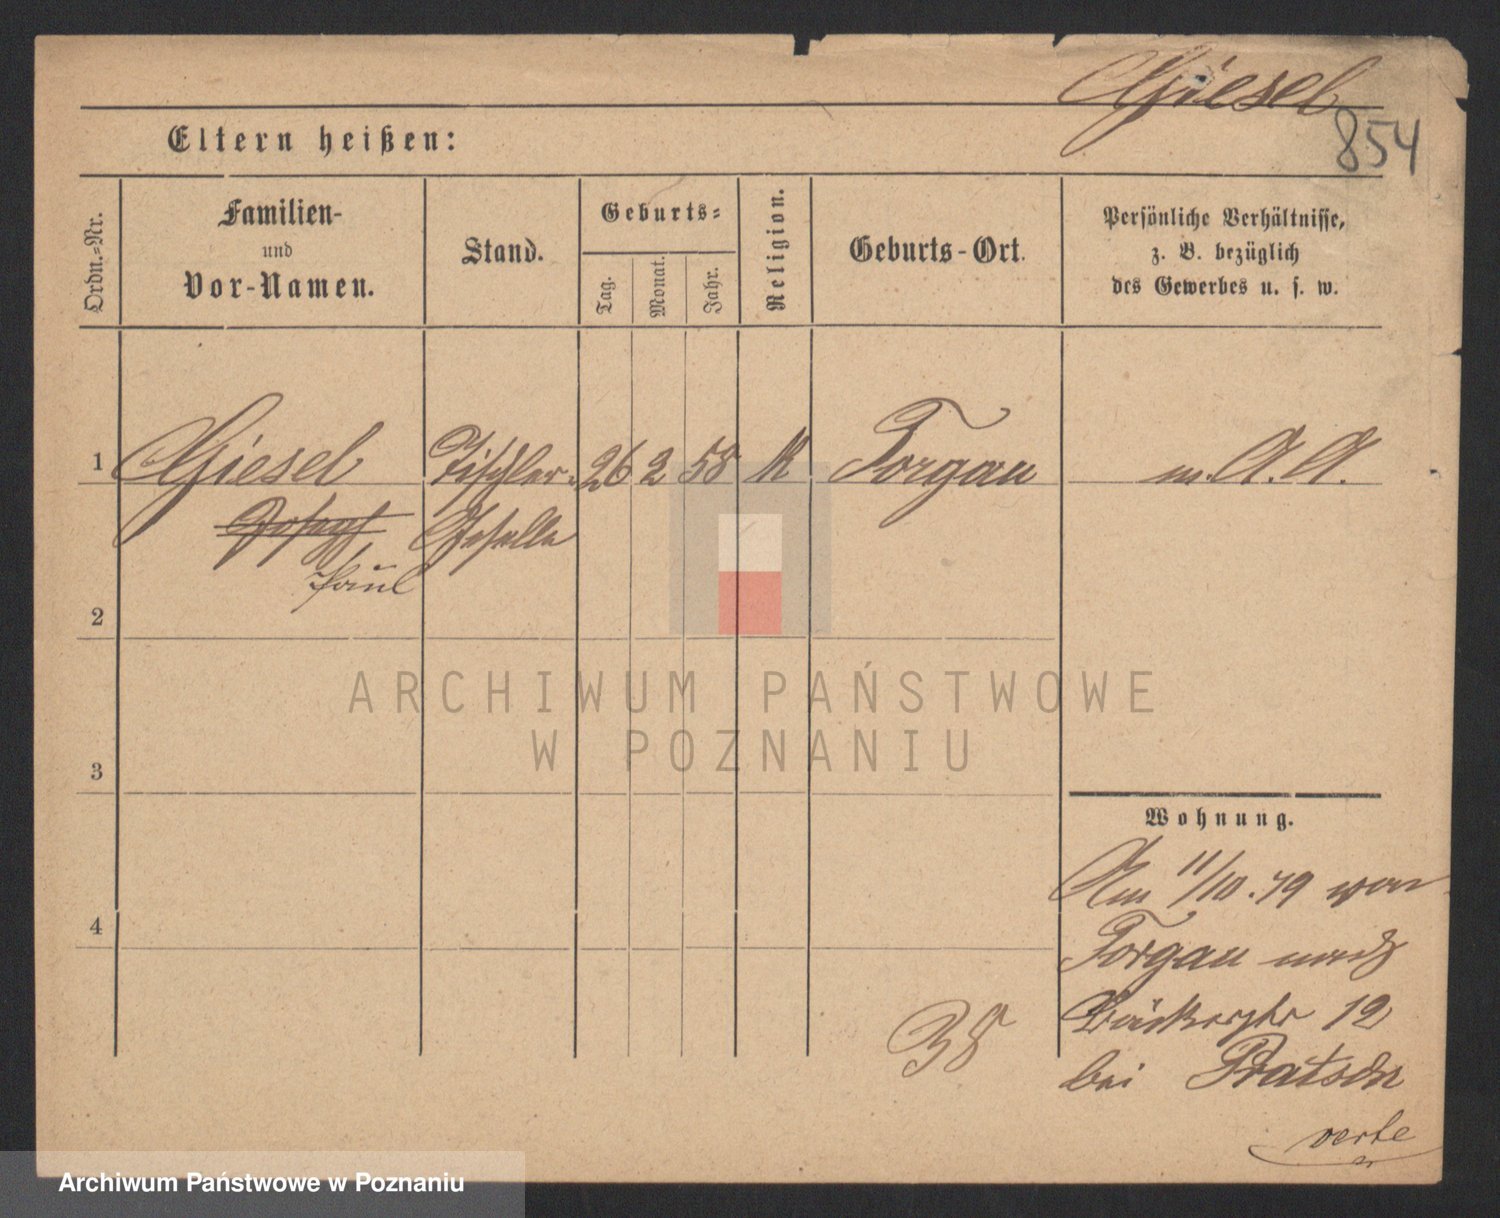 Giesel
854
Eltern heißen:
Ordn.=Nr.
Familien-
und
Vor-Namen.
Stand.
Geburts=
Tag.
Monat.
Jahr.
Religion.
Geburts-Ort.
Persönliche Verhältnisse,
z. B. bezüglich
des Gewerbes u. s. w.
1 Giesel Tischler- 26 2 58 K Torgau m. A. A.
Joseph Geselle
Paul
2
ARCHIWUM PAŃSTWOWE
W POZNANIU
3
Wohnung.
Am 11/10.79 von
Torgau nach
4
Bäckerstr 12
38
bei
verte
Archiwum Państwowe w Poznaniu